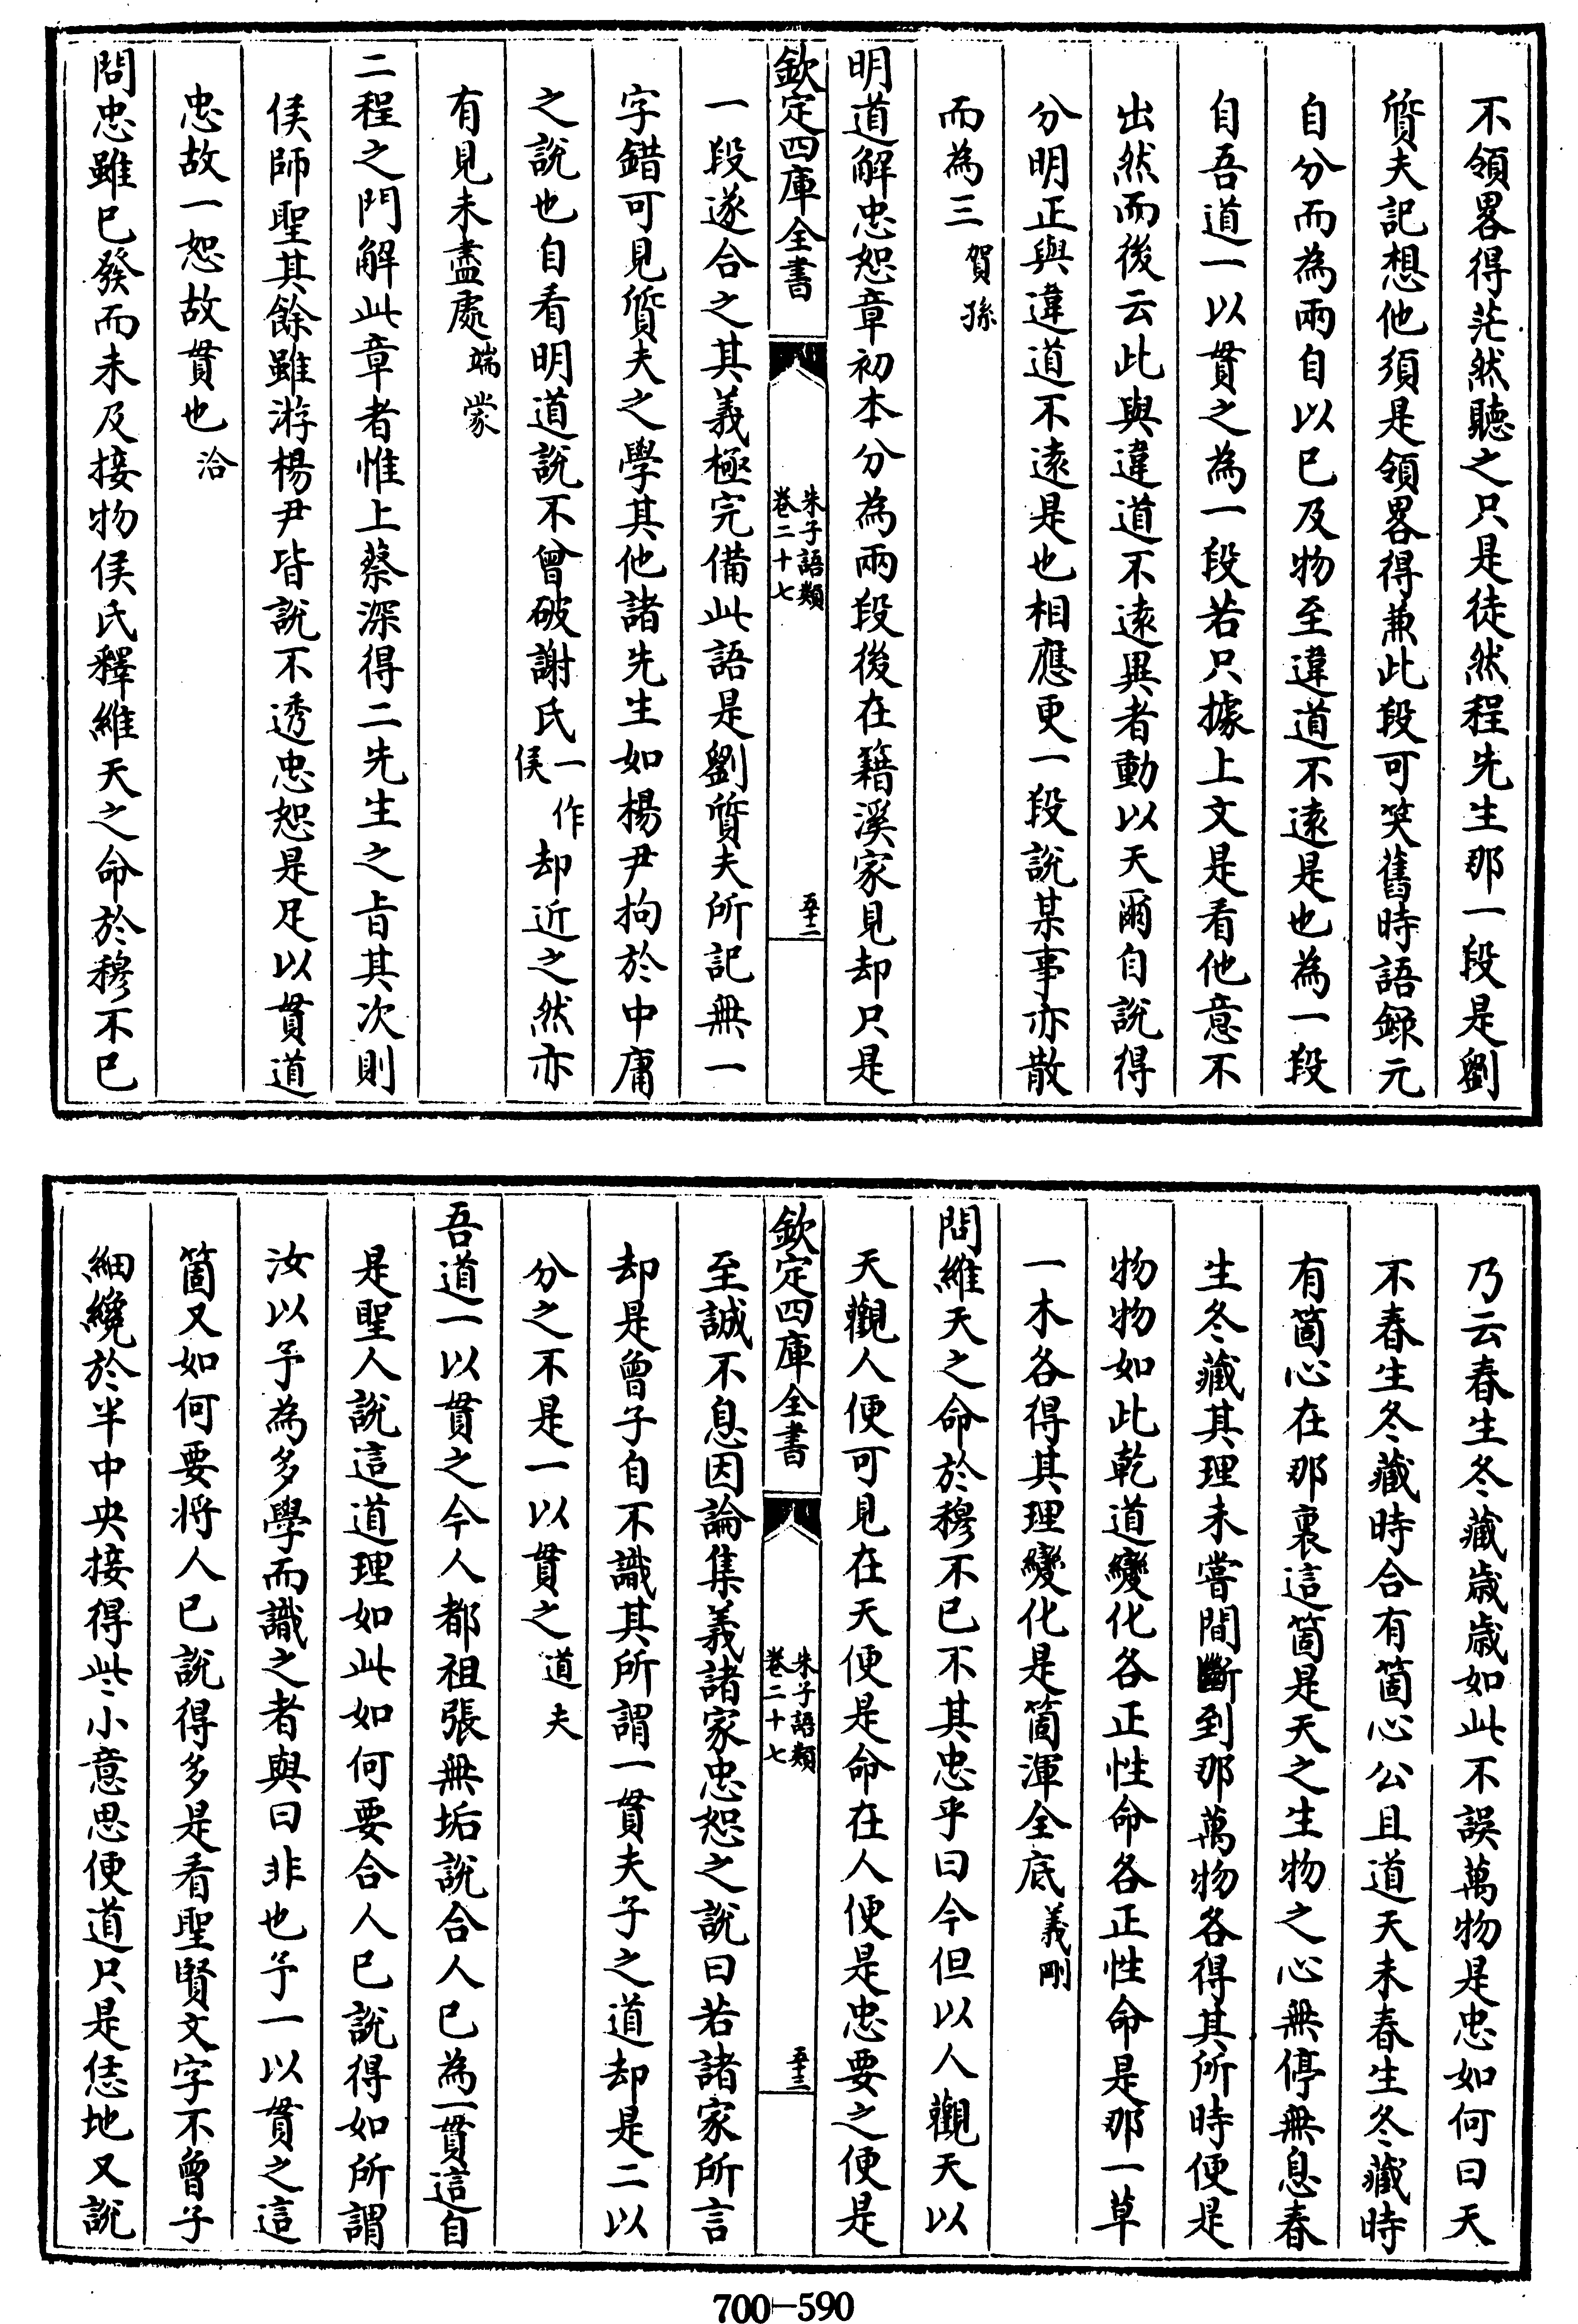 不領畧得茫然聽之只是徒然程先生那一段是劉
質夫記想他須是領畧得兼此段可笑舊時語錄元
自分而為兩自以已及物至違道不遠是也為一段
自吾道一以貫之為一段若只據上文是看他意不
出然而後云此與違道不遠異者動以天爾自說得
分明正與違道不遠是也相應更一段說某事亦散
而為三賀孫
明道解忠恕章初本分為兩段後在籍溪家見却只是
欽定四庫全書
朱子語類
卷二十七
五十二
一段遂合之其義極完備此語是劉質夫所記無一
字錯可見質夫之學其他諸先生如楊尹拘於中庸
之說也自看明道說不曾破謝氏一作侯却近之然亦
有見未盡處端蒙
二程之門解此章者惟上蔡深得二先生之旨其次則
侯師聖其餘雖游楊尹皆說不透忠恕是足以貫道
忠故一恕故貫也洽
問忠雖已發而未及接物侯氏釋維天之命於穆不已
乃云春生冬藏歲歲如此不誤萬物是忠如何曰天
不春生冬藏時合有箇心公且道天未春生冬藏時
有箇心在那裏這箇是天之生物之心無停無息春
生冬藏其理未嘗間斷到那萬物各得其所時便是
物物如此乾道變化各正性命各正性命是那一草
一木各得其理變化是箇渾全底義剛
問維天之命於穆不已不其忠乎曰今但以人觀天以
天觀人便可見在天便是命在人便是忠要之便是
欽定四庫全書
朱子語類
卷二十七
五十三
至誠不息因論集義諸家忠恕之說曰若諸家所言
却是曾子自不識其所謂一貫夫子之道却是二以
分之不是一以貫之道夫
吾道一以貫之今人都祖張無垢說合人已為一貫這自
是聖人說這道理如此如何要合人已說得如所謂
汝以予為多學而識之者與曰非也予一以貫之這
箇又如何要將人已說得多是看聖賢文字不曾子
細纔於半中央接得些小意思便道只是恁地又說
700-590